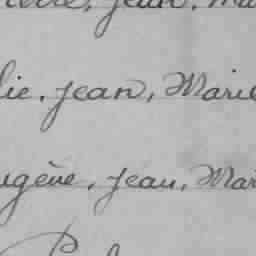 Jean,
lie, Jean, Marie
ugène, Jean, Mar